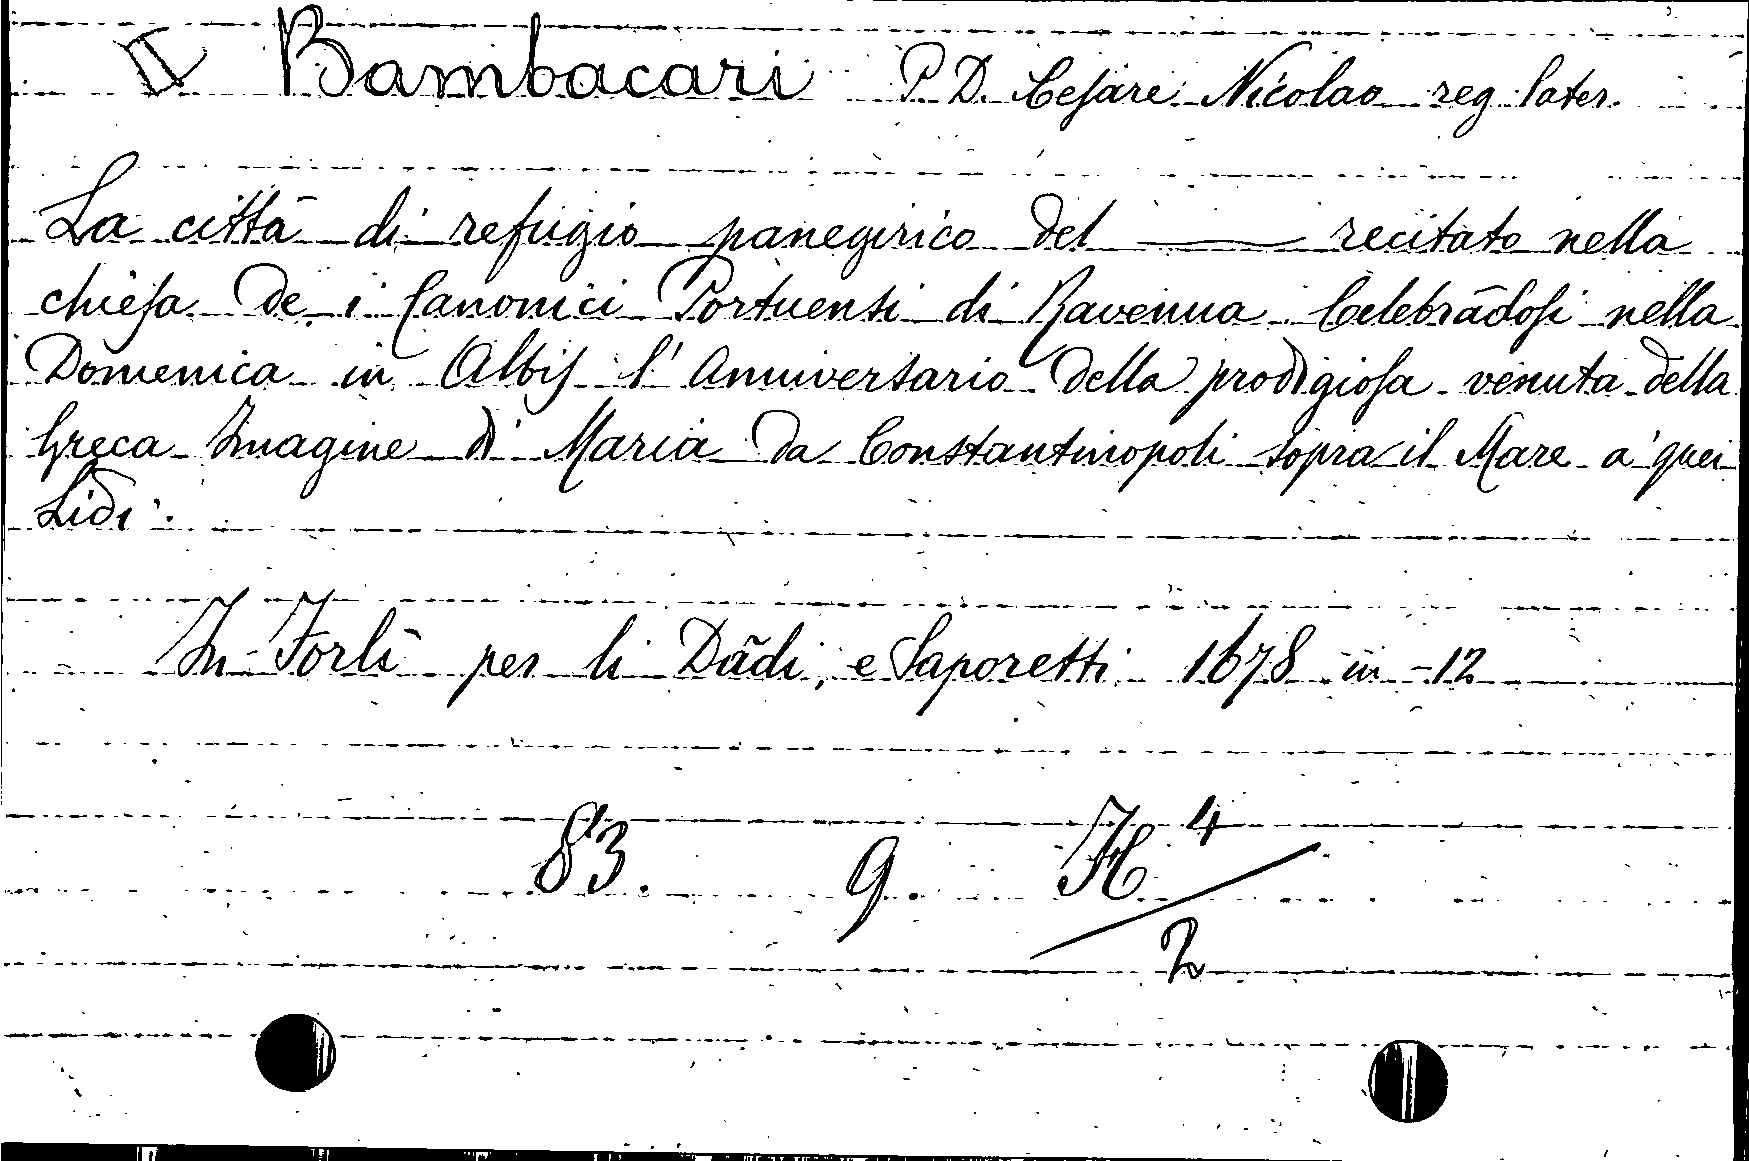 II Bambacari P. D. Cesare Nicolao reg. later.
La cittá di refugio panegirico del —— recitato nella
chiesa de i Canonici Portuensi di Ravenna Celebrãdosi nella
Domenica in Albis l'Anniversario della prodigiosa venuta della
Greca Imagine di Maria da Constantinopoli sopra il Mare a' quei
Lidi.
In Forlì per li Dãdi, e Saporetti 1678 in -12
83. 9. H 4
2